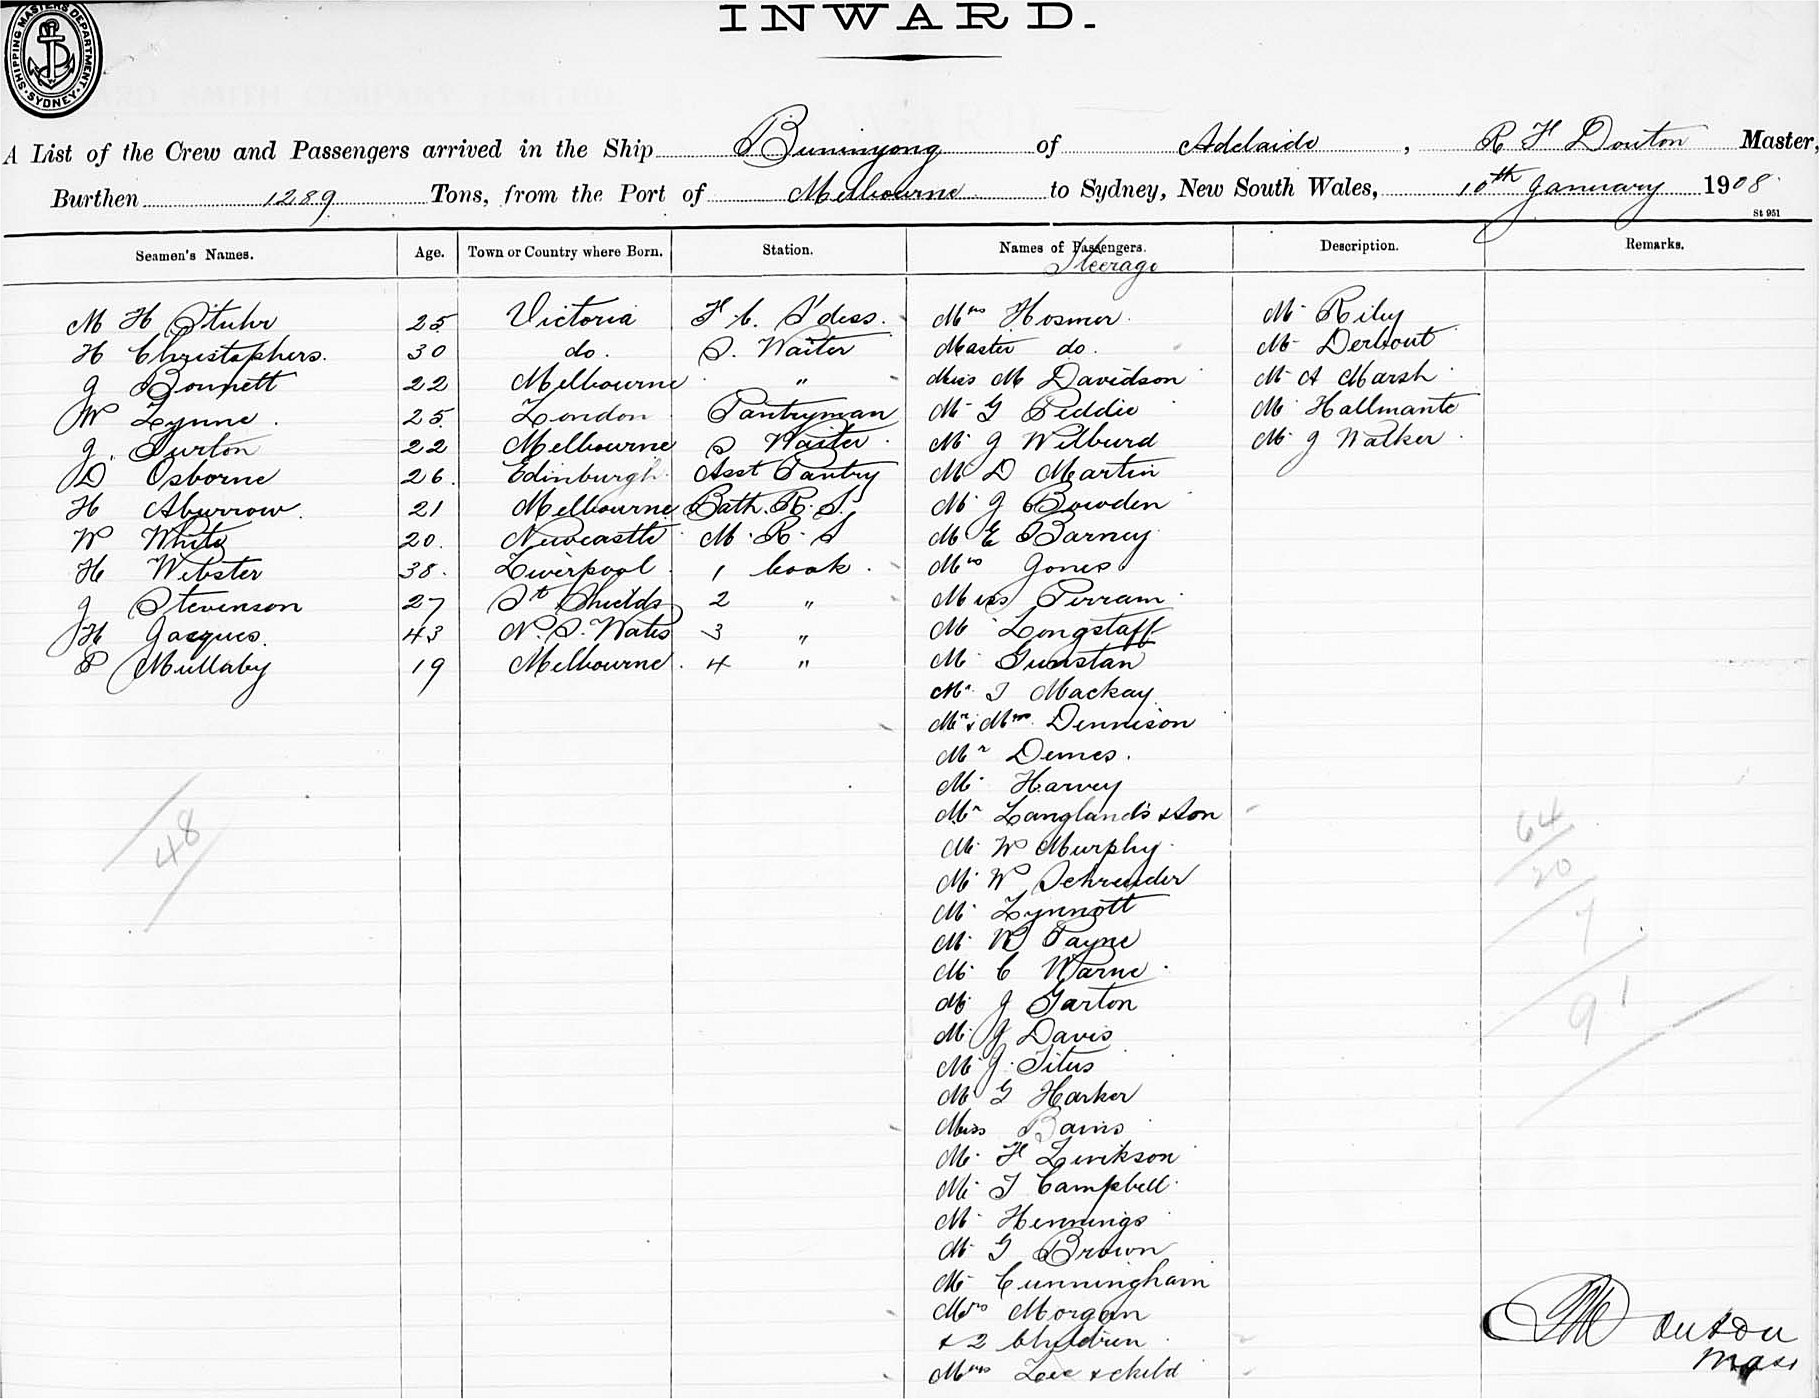 INWARD.
SHIPPING MASTERS DEPARTMENT. SYDNEY
A List of the Crew and Passengers arrived in the Ship Buninyong of Adelaide, R F Douton Master,
Burthen 1289 Tons, from the Port of Melbourne to Sydney, New South Wales, 10th January 1908.
St 951
Seamen's Names. Age. Town or Country where Born. Station. Names of Passengers. Description. Remarks.
Steerage
M H Stuhr 25 Victoria F. C. S'dess. Mrs Hosmer Mr Riley
H Christophers. 30 do. S. Waiter Master do. Mr Derbout
J Bonnett 22 Melbourne " Miss M Davidson Mr A Marsh
W Lynne 25 London Pantryman Mr G Peddie Mr Hallmante
J. Purton 22 Melbourne S Waiter Mr J Wilburd Mr J Walker
D Osborne 26. Edinburgh Asst Pantry Mr D Martin
H Aburrow. 21 Melbourne Bath. R. S. Mr J Bowden
W White 20. Newcastle M. R. S Mr E Barney
H Webster 38. Liverpool 1 Cook. Mrs Jones
J Stevenson 27 Sth Shields 2 " Miss Perram
H Jacques. 43 N. S. Wales 3 " Mr Longstaff
P Mullaby 19 Melbourne. 4 " Mr Gunstan
Mr J Mackay
Mr & Mrs Dennison
Mr Demes.
Mr Harvey
Mr Langlands & Son
48
64
Mr W Murphy
20
Mr W Schreuder
Mr Lynnott
7
Mr W Payne
Mr C Warne
91
Mr J Garton
Mr J Davis
Mr J. Titus
Mr G Harker
Miss Bains
Mr F Levikson
Mr J Campbell
Mr Hennings
Mr G Brown
Mr Cunningham
Mrs Morgan
& 2 Children
Mrs Lee & child
Douton
Mas